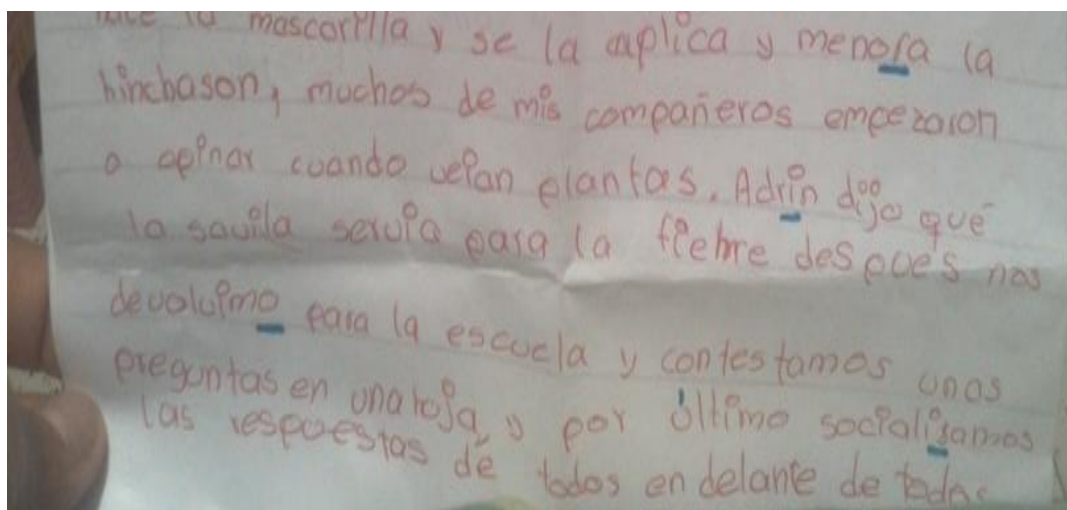 la mascarilla y se la aplica y menora la
hinchason, muchos de mis compañeros empezaron
a opinar cuando veian plantas. Adrin dijo que
la savila servia para la fiebre despues nos
devolvimo para la escuela y contestamos unas
preguntas en una hoja, y por último socialisamos
las respuestas de todos en delante de todos